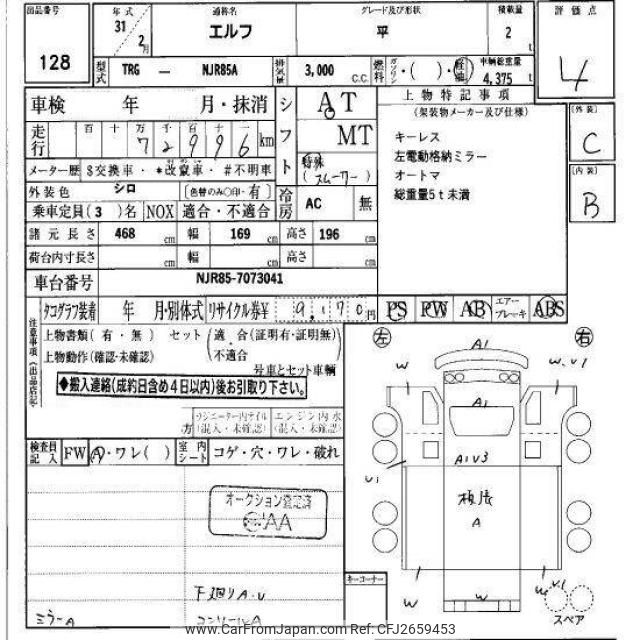 出品番号 年式 通称名 グレード及び形状 積載量 評価点
128 31 2月 エルフ 平 2 t 4
型式 TRG — NJR85A 排気量 3,000 C.C. 燃料 ガソリン・( )・軽油 車輌総重量 4,375 t
車検 年 月・抹消 シフト AT 上物特記事項 〔外装〕
(架装物メーカー及び仕様) C
走行 百 十 万 千 百 十 MT キーレス
7 2 9 9 6 km 左電動格納ミラー
メーター歴 $交換車・*改竄車・#不明車 特殊 オートマ 〔内装〕
(スムーサー) 総重量5t未満 B
外装色 シロ 〔色替のみ○印・有〕 冷房 AC 無
乗車定員(3)名 NOX 適合・不適合
諸元長さ 468 cm 幅 169 cm 高さ 196 cm
荷台内寸長さ cm 幅 cm 高さ cm
車台番号 NJR85-7073041
タコグラフ装着 年 月・別体式 リサイクル券¥ 9,170円 PS PW AB エアーブレーキ ABS
注意事項(出品店記)
上物書類(有・無) セット 適合(証明有・証明無) 左 右
上物動作(確認・未確認) 不適合 A1
号車とセット車輌 W W,V1
◆搬入連絡(成約日含め4日以内)後お引取り下さい。
A1
方 ラジエーター内オイル エンジン内水
(混入・未確認) (混入・未確認)
検査員記入 FW A・ワレ( ) 室内シート コゲ・穴・ワレ・破れ A1V3
V1
オークション登記済 板張
AA A
下廻りA.V キーコーナー
W W V1
ミラーA スペア
www.CarFromJapan.com Ref:CFJ2659453